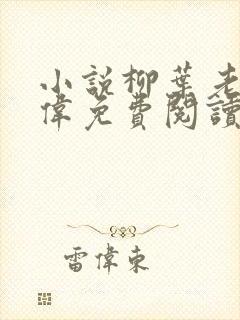 小說柳葉老
偉免費閱讀
雷偉東